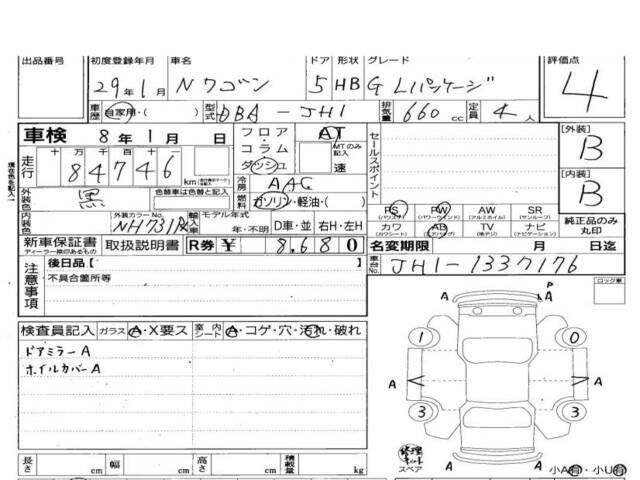 出品番号 初度登録年月 車名 ドア 形状 グレード 評価点
29年1月 Nワゴン 5 HB G Lパッケージ 4
車歴 自家用・( ) 型式 DBA-JH1 排気量 660 cc 定員 4人
車検 8年1月 日
フロア コラム ダッシュ
AT MTのみ記入 速
セールスポイント
[外装] B
走行 十 万 千 百 十 一
84746 km
現在色を記入
外装色 黒 色替車は色替前色
冷房 AAC
燃料 ガソリン・軽油・( )
[内装] B
PS (パワステ) PW (パワーウインド) AW (アルミホイル) SR (サンルーフ)
カワ (カワシート) AB (エアバッグ) TV (地デジ) ナビ (ナビゲーション)
純正品のみ丸印
内装色 外装カラーNo. NH731P 輸入車 モデル年式 年・不明 D車・並 右H・左H
新車保証書 ディーラー捺印あるもの 取扱説明書 R券 ¥ 8,680
名変期限 月 日迄
車台No. JH1-1337176
注意事項 後日品【
不具合箇所等
ロック車
検査員記入 ガラス A・X要ス 室内シート A・コゲ・穴・汚れ・破れ
ドアミラーA
ホイルカバーA
P A
1 0
A A
3 3
修理キット
スペア
A A
小A有・小U有
長さ cm 幅 cm 高さ cm 積載量 kg